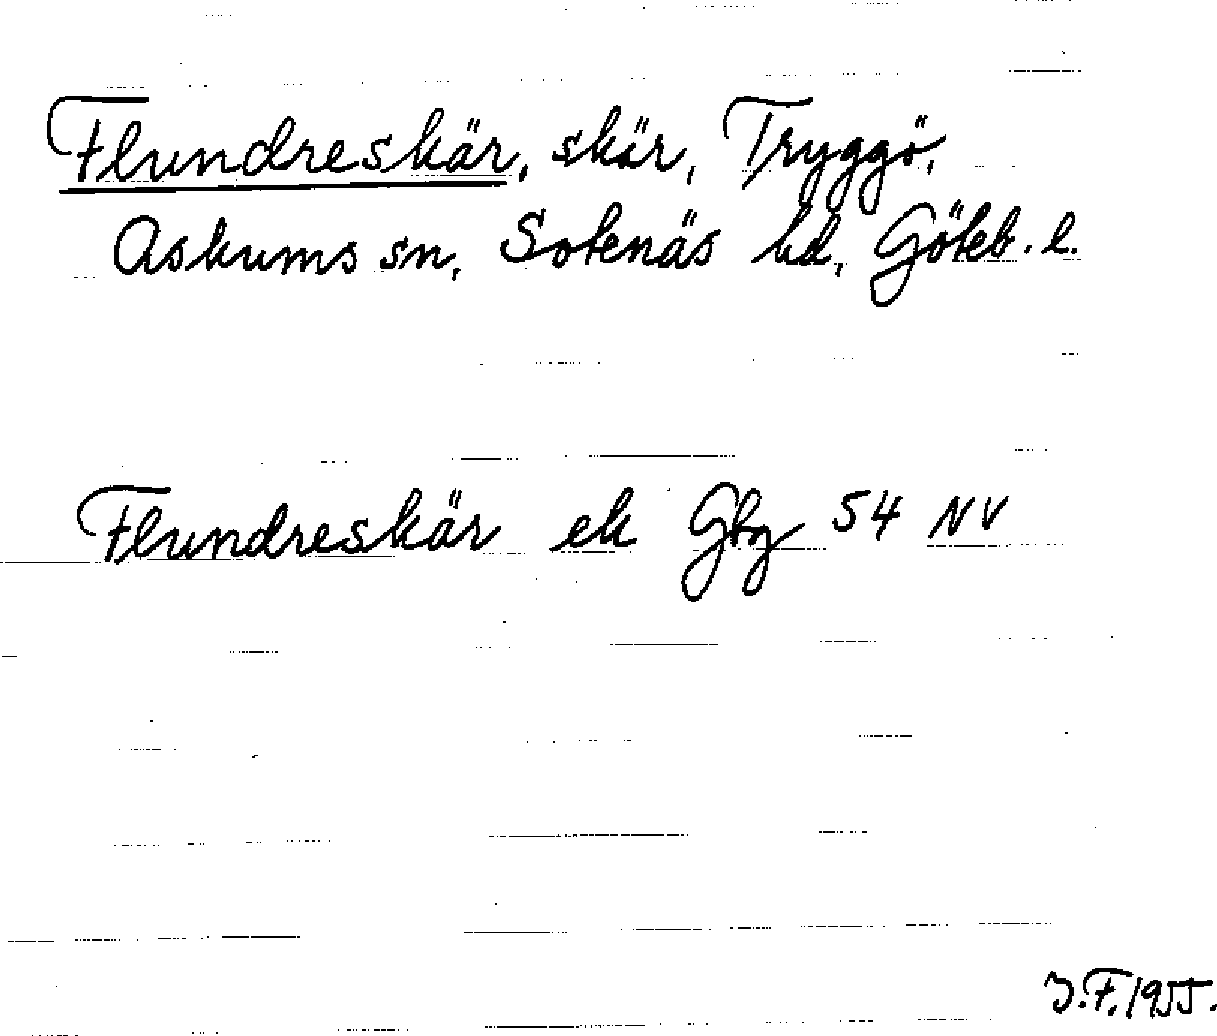 Flundreskär, skär, Tryggö,
Askums sn, Sotenäs hd, Göteb. l.
Flundreskär ek Gbg 54 NV
J.F. 1955.